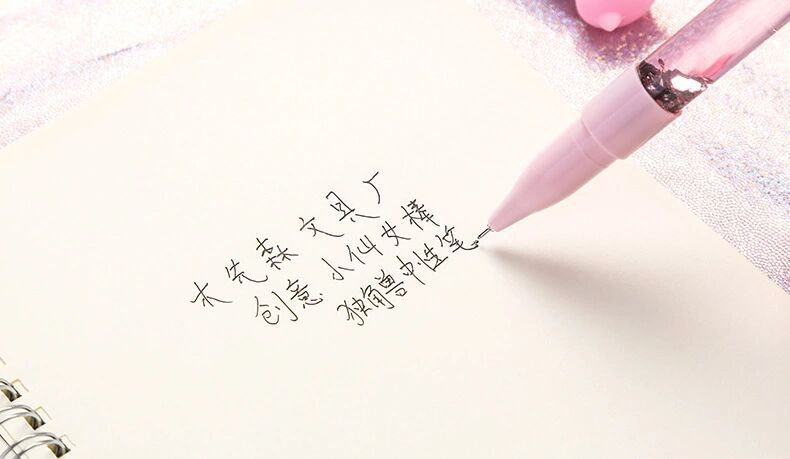 木农森 文具厂
创意 小仙女棒
独角兽中性笔